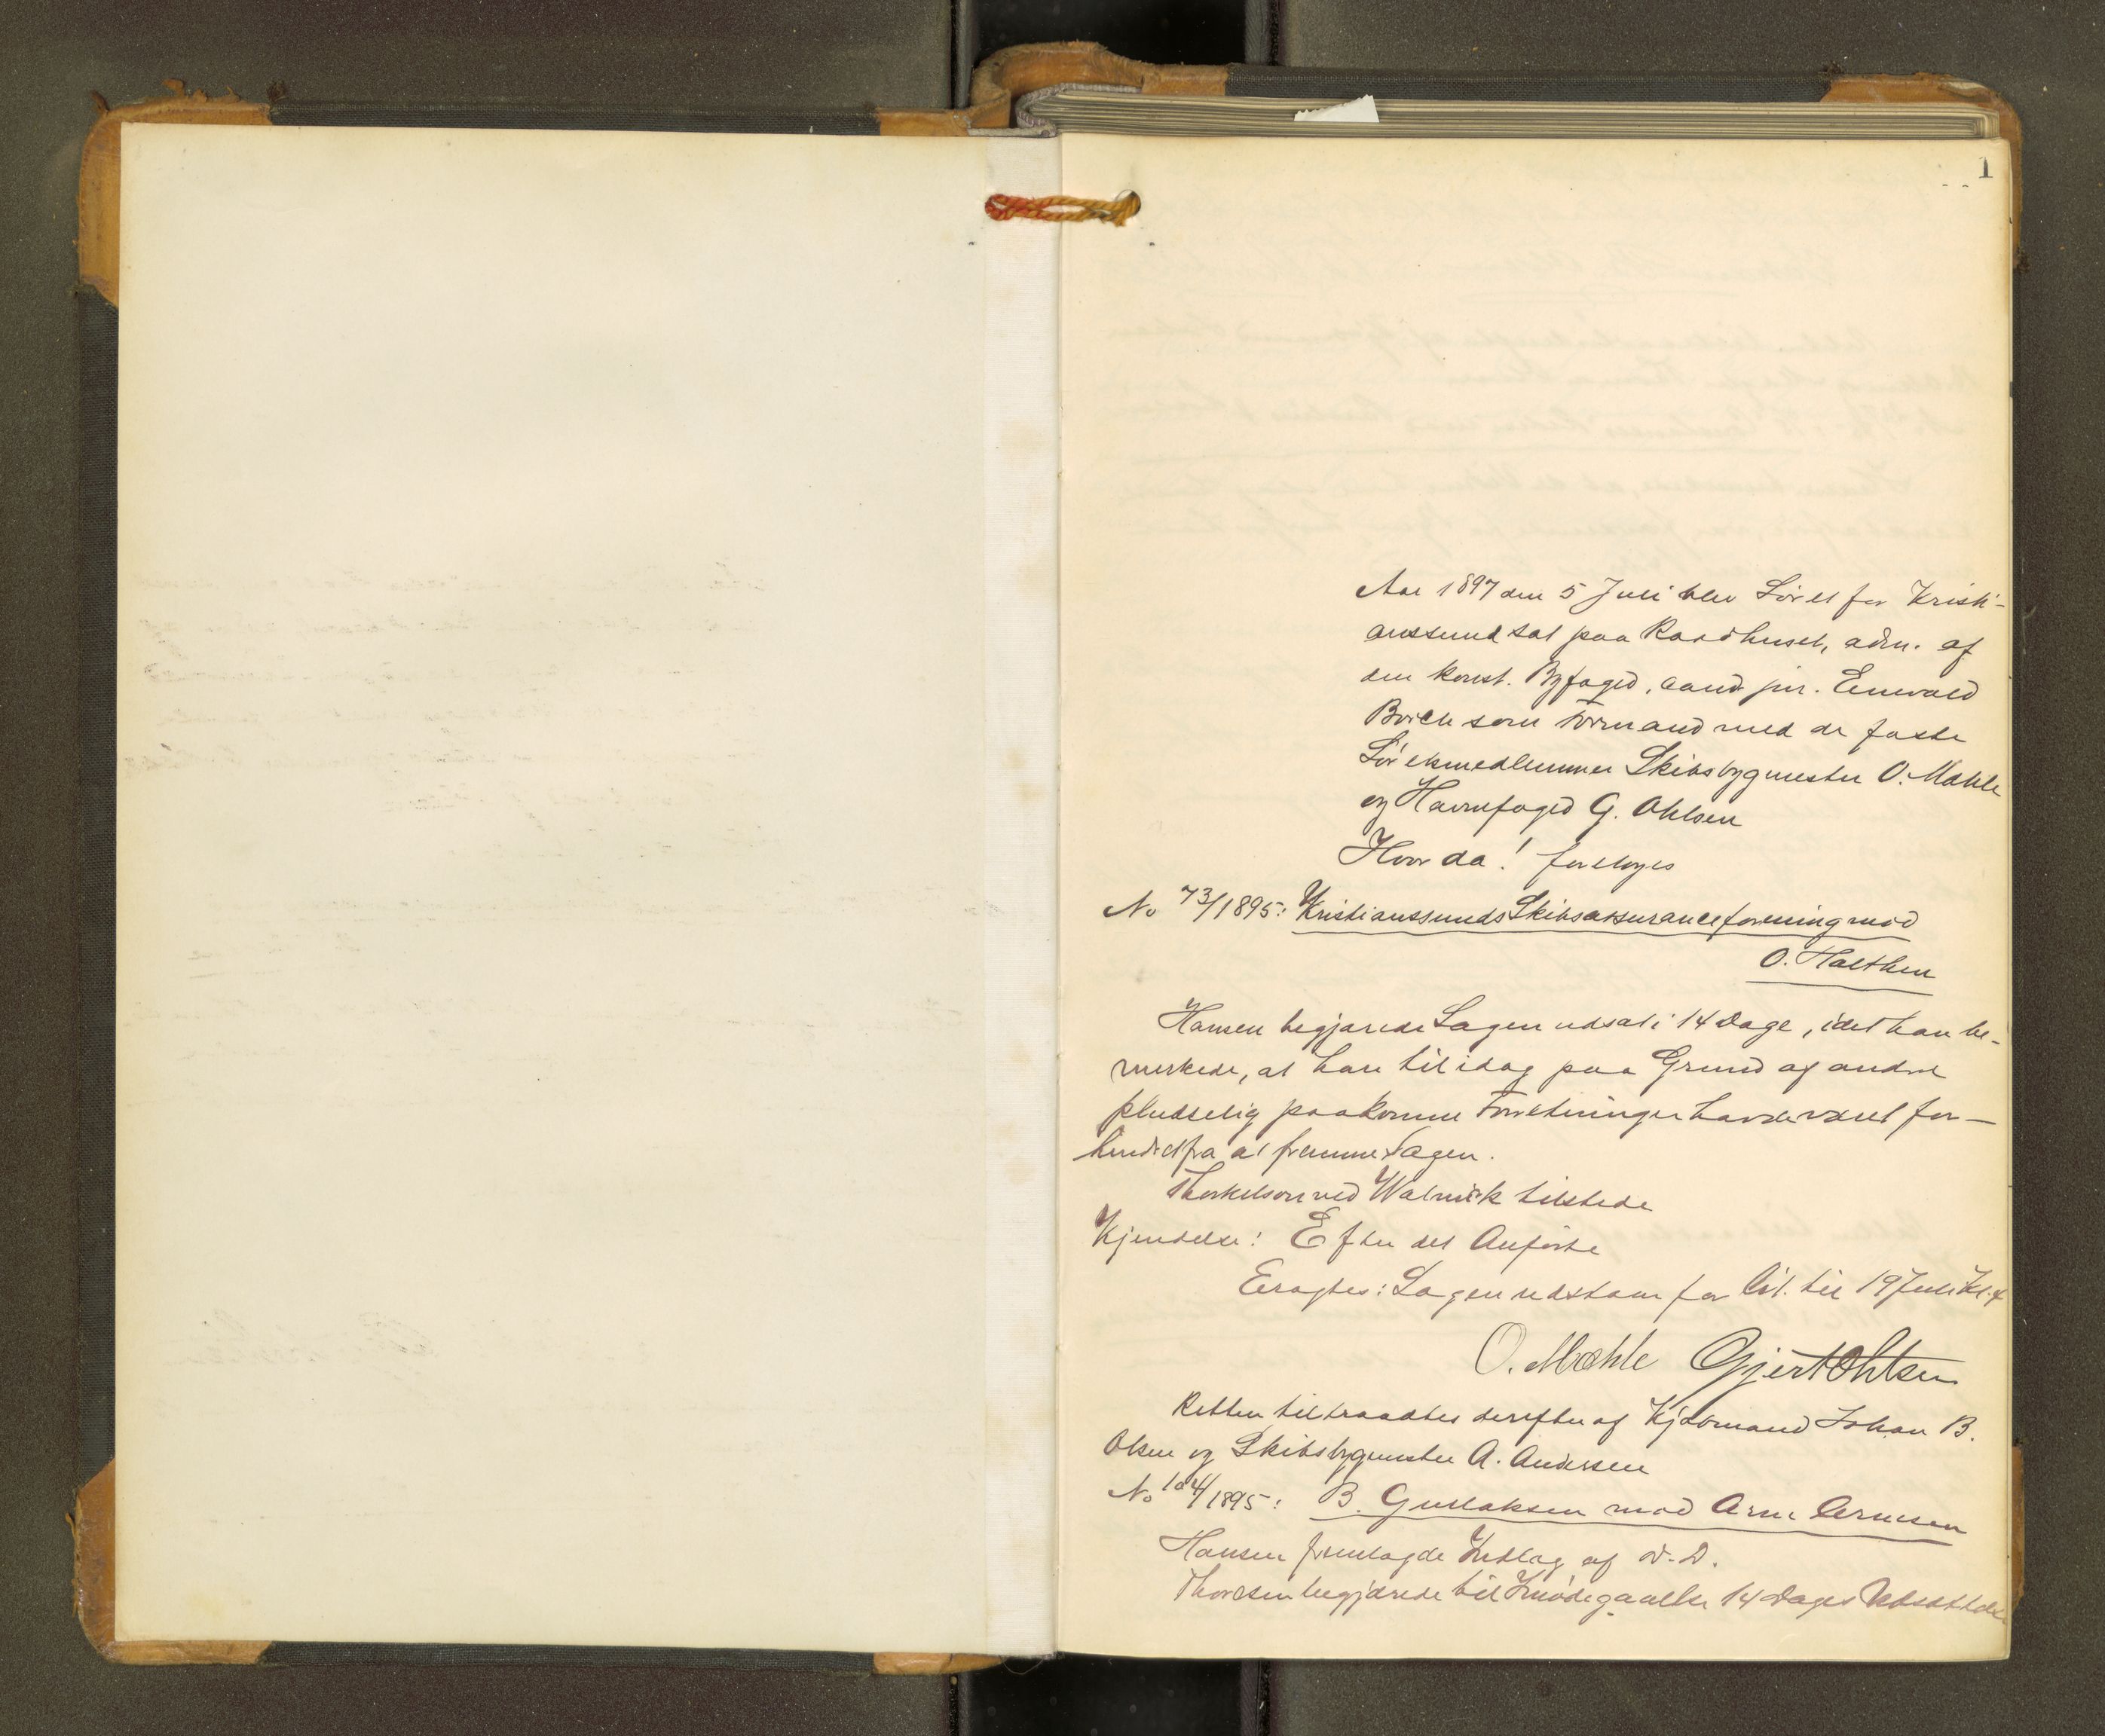 1
Aar 1897 den 5 Juli blev Søret for Kristi-
anssund sat paa Raadhuset, adm. af
den konst. Byfoged, cand jur. Einvald
Boich som Formand med de faste
Søretsmedlemmer Skibsbygmester O. Mæhle
og Havnefoged G. Ohlsen
Hvor da! foretoges
No 73/1895: Kristianssunds Skibsassuranceforening mod
O. Halthen
Hansen begjærede Sagen udsat i 14 Dage, idet han be-
mærkede, at han til idag paa Grund af andre
pludselig paakomne Forretninger havde været for-
hindret fra at fremme Sagen.
Thorkelson ved Walnick tilstede
Kjendelse: Efter det Anførte
Eragtes: Sagen udstaar for Cit. til 19 Juli Kl. 4
O. Mæhle Gjert Ohlsen
Retten tiltraadtes derefter af Kjøbmand Johan B.
Olsen og Skibsbygmester A. Andersen
No 104/1895: B. Gullaksen mod Arne Arnesen
Hansen fremlagde Indlæg af d. D.
Thoresen begjærede til Imødegaaelse 14 Dages Udsættelse